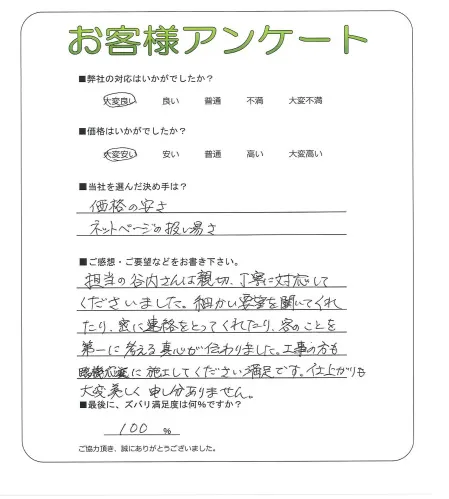 お客様アンケート
■弊社の対応はいかがでしたか？
大変良い 良い 普通 不満 大変不満
■価格はいかがでしたか？
大変安い 安い 普通 高い 大変高い
■当社を選んだ決め手は？
価格の安さ
ネットページの扱い易さ
■ご感想・ご要望などをお書き下さい。
担当の谷内さんは親切、丁寧に対応して
くださいました。細かい要望を聞いてくれ
たり、密に連絡をとってくれたり、客のことを
第一に考える真心が伝わりました。工事の方も
に施工してくださり満足です。仕上がりも
大変美しく申し分ありません。
■最後に、ズバリ満足度は何％ですか？
100 ％
ご協力頂き、誠にありがとうございました。